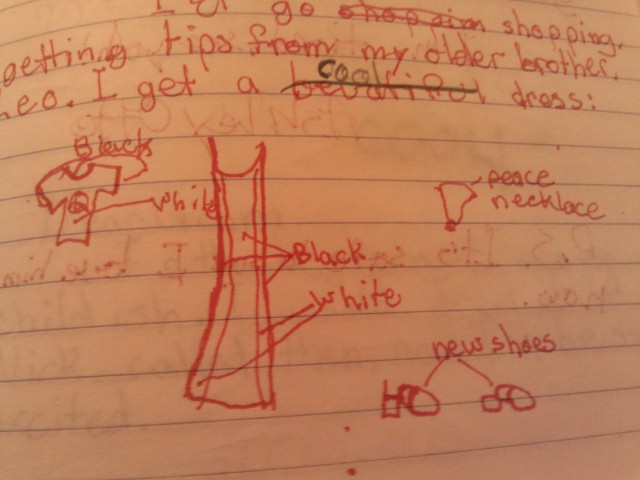 go shopping shopping.
getting tips from my older brother,
Leo. I get a cool dress:
Black
white
peace
necklace
Black
White
new shoes